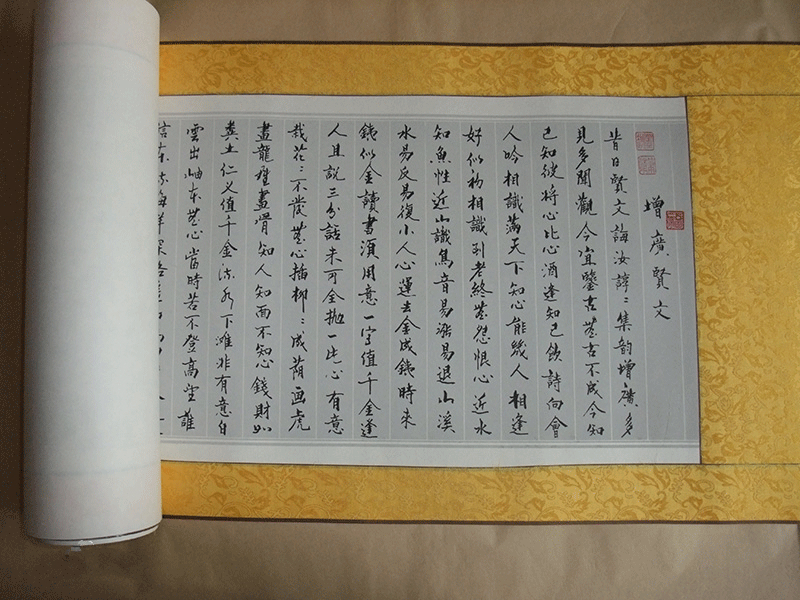 增廣賢文
昔日賢文誨汝諄〻集韵增廣多
見多聞觀今宜鑒古無古不成今知
己知彼將心比心酒逢知己飲詩向會
人吟相識滿天下知心能幾人相逢
好似初相識到老終無怨恨心近水
知魚性近山識鳥音易漲易退山溪
水易反易復小人心運去金成鉄時來
鉄似金讀書須用意一字值千金逢
人且說三分話未可全抛一片心有意
栽花〻不發無心插柳〻成蔭画虎
畫龍難畫骨知人知面不知心錢財如
糞土仁义值千金流水下灘非有意白
雲出岫本無心當時若不登高望誰
信東流海洋深路遙